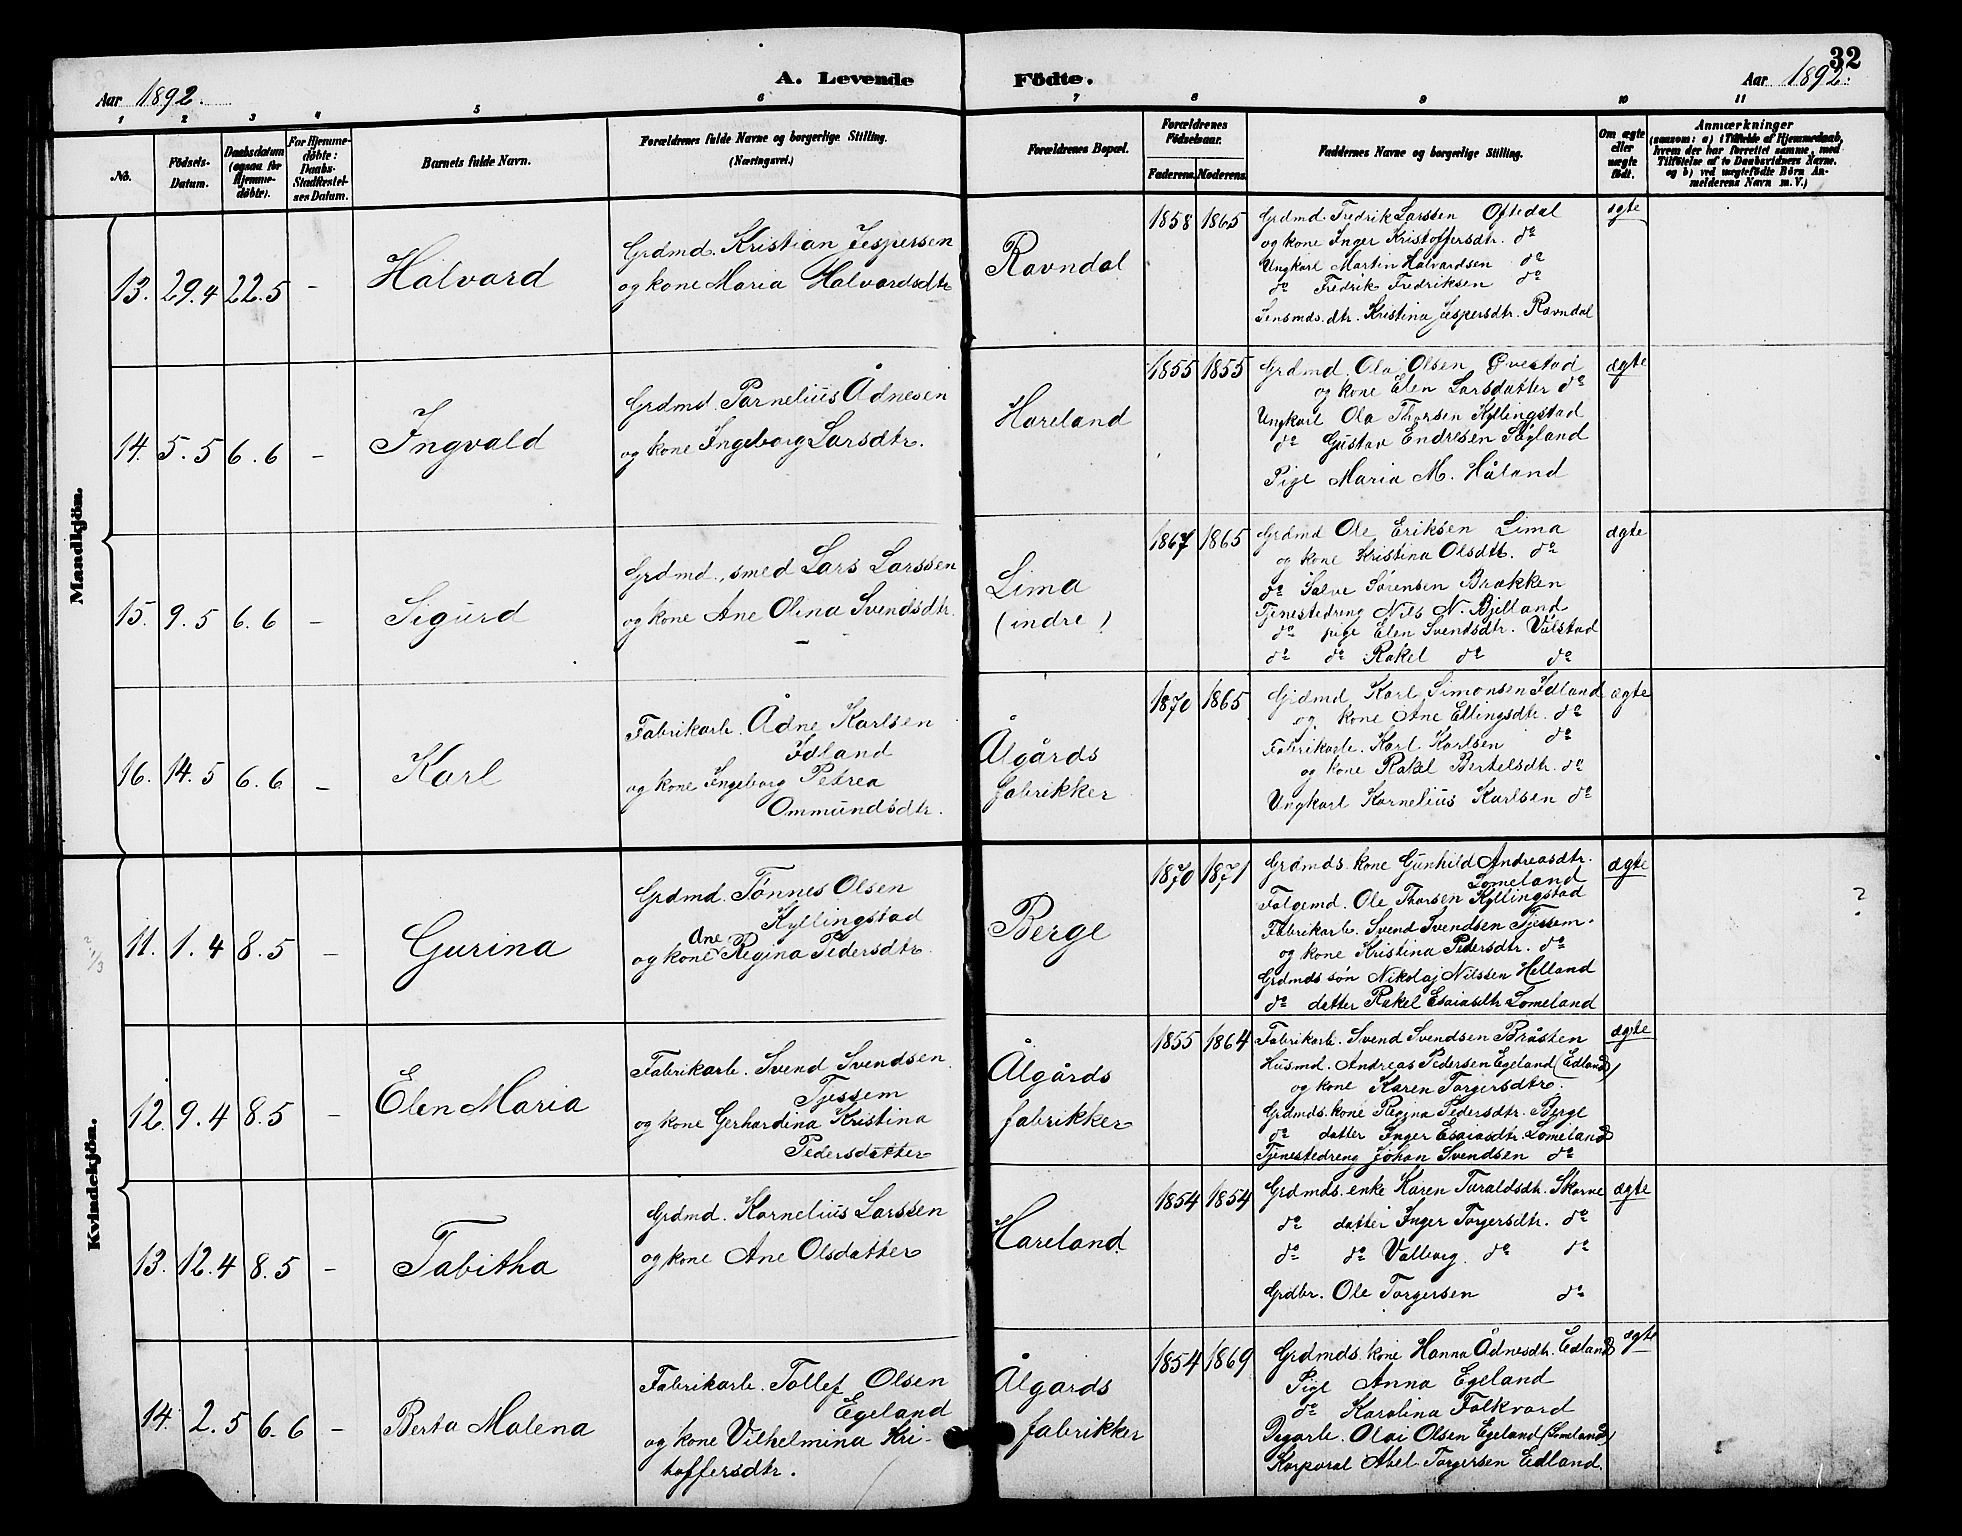 32
Aar 1892.
A. Levende Födte.
Aar 1892.
1 2 3 4 5 6 7 8 9 10 11
No.
Födsels-
Datum.
Daabsdatum
(ogsaa for
Hjemme-
döbte).
For Hjemme-
döbte:
Daabs-
Stadfæstel-
ses Datum.
Barnets fulde Navn.
Forældrenes fulde Navne og borgerlige Stilling.
(Næringsvei.)
Forældrenes Bopæl.
Forældrenes
Födselsaar.
Faderens. Moderens.
Faddernes Navne og borgerlige Stilling.
Om ægte
eller
uægte
født.
Anmærkninger
(saasom: a) i Tilfælde af Hjemmedaab,
hvem der har forrettet samme, med
Tilföielse af to Daabsvidners Navne.
og b) ved uægtefödte Börn An-
melderens Navn m. V.)
Mandkjön.
13. 29.4 22.5 -
Halvard
Grdmd. Kristian Jespersen
og kone Maria Halvardsdtr
Ravndal
1858 1865
Grdmd. Fredrik Larssen Oftedal
og kone Inger Kristoffersdtr. do
Ungkarl Martin Halvardsen do
do Fredrik Fredriksen do
Lensmds. dtr. Kristina Jespersdtr. Ravndal
ægte
14. 5.5 6.6 -
Ingvald
Grdmd. Parnelius Ådnesen
og kone Ingeborg Larsdtr.
Hareland
1855 1855
Grdmd. Ola Olsen Øvestad
og kone Elen Larsdatter do
Ungkarl Ola Thorsen Kyllingstad
do Gustav Endresen Søyland
Pige Maria M. Håland
ægte
15. 9.5 6.6 -
Sigurd
Grdmd., smed Lars Larssen
og kone Ane Olina Svendsdtr.
-
Lima
(indre)
1867 1865
Grdmd Ole Eriksen Lima
og kone Kristina Olsdtr. do
do Salve Sørensen Brækken
Tjenestedreng Nils N. Bjelland
do pige Elen Svendsdtr. Valstad
do do Rakel do do
ægte
16. 14.5 6.6 -
Karl
Fabrikarb. Ådne Karlsen
Idland
og kone Ingeborg Petrea
Ommundsdtr.
Ålgårds
fabrikker
1870 1865
Grdmd Karl Simonsen Idland
og kone Ane Ellingsdtr. do
Fabrikarb. Karl Karlsen do
og kone Rakel Bertelsdtr. do
Ungkarl Kornelius Karlsen do
ægte
Kvindekjön.
? 1/3
11. 1.4 8.5 -
Gurina
Grdmd. Tønnes Olsen
Kyllingstad
og kone Ane Regina Pedersdtr.
Berge
1870 1871
Grdmds. kone Gunhild Andreasdtr.
Lomeland
Følgemd. Ole Thorsen Kyllingstad
Fabrikarb. Svend Svendsen Tjessem.
og kone Kristina Pedersdtr. do
Grdmds søn Nikolaj Nilssen Helland
do datter Rakel Esaiasdtr Lomeland
ægte
?
12. 9.4 8.5 -
Elen Maria
Fabrikarb. Svend Svendsen
Tjessem
og kone Gerhardina Kristina
Pedersdatter
Ålgårds
fabrikker
1855 1864
Fabrikarb. Svend Svendsen Bråsten
Husmd. Andreas Pedersen Egeland (Edland)
og kone Karen Torgersdtr.
Grdmds. kone Regina Pedersdtr. Berge
do datter Inger Esaiasdtr. Lomeland
Tjenestedreng Johan Svendsen do
ægte
13. 12.4 8.5 -
Tabitha
Grdmd. Kornelius Larssen
og kone Ane Olsdatter
Hareland
1854 1854
Grdmds. enke Karen Taraldsdtr. Skarne
do datter Inger Torgersdtr. do
do do Valborg do do
Grdbr. Ole Torgersen do
ægte
14. 2.5 6.6 -
Berta Malena
Fabrikarb. Tollef Olsen
Egeland
og kone Vilhelmina Kri-
toffersdtr.
Ålgards
fabrikker
1854 1869
Grdmds. kone Hanna Ådnesdtr. Edland
Pige Anna Egeland
do Karolina Folkvord
Dagarb. Olai Olsen Egeland (Lomeland)
Korporal Abel Torgersen Edland.
ægte